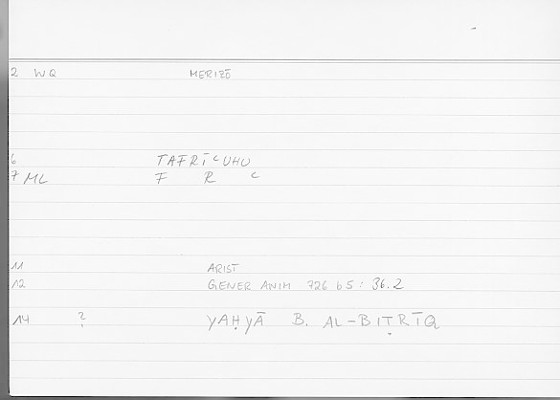 2 WQ MERIZĒ
6 TAFRĪʿUHU
7 ML F R ʿ
11 ARIST
12 GENER ANIM 726 b5: 36.2
14 ? YAḤYĀ B. AL-BIṬRĪQ